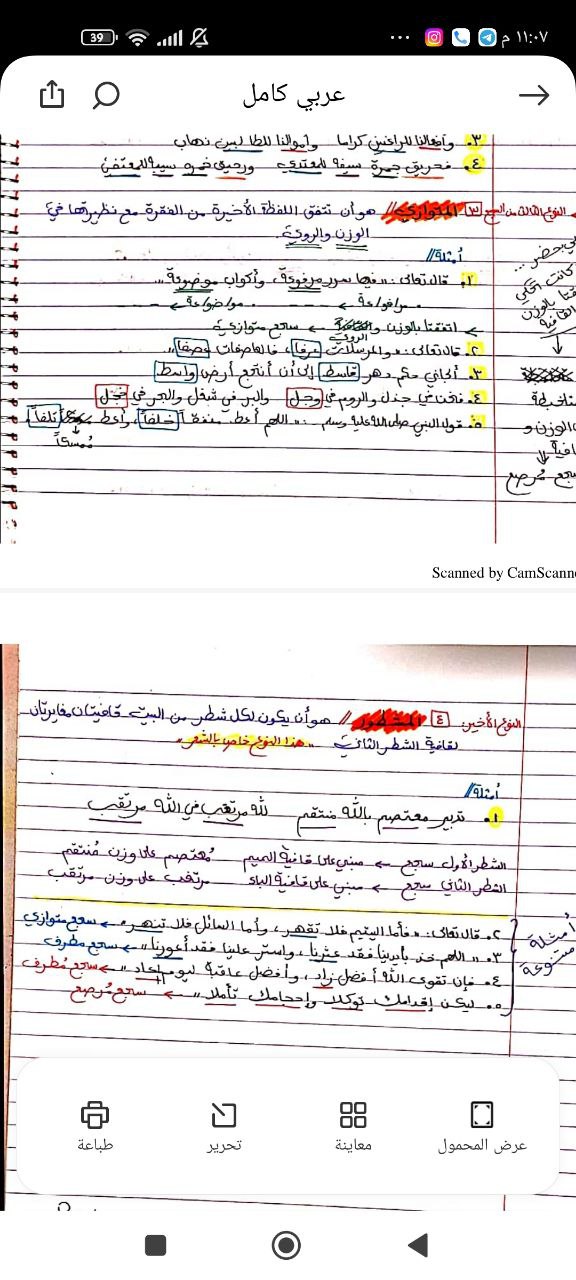 39 ١١:٠٧ م
عربي كامل
٣. وأفعالنا للراغبين كراما وأموالنا للطالبين نهاب
٤. فحريق جمرة سيفه للمعتدي ورحيق خمرة سيبه للمعتفي
النوع الثالث من السجع ٣ المتوازي // هو أن تتفق اللفظة الأخيرة من الفقرة مع نظيرتها في
الوزن والروي.
أمثلة//
١. قال تعالى: "فيها سرر مرفوعة، وأكواب موضوعة"
اتفقتا بالوزن والروي ← سجع متوازي
٢. قال تعالى: والمرسلات عرفا، فالعاصفات عصفا"
٣. ألجأني حكم دهر قاسط إلى أن أنتجع أرض واسط
٤. فنحن في جذل والروم في وجل والبر في شغل والبحر في خجل
٥. قول النبي صلى الله عليه وسلم: "اللهم أعط منفقاً خلفاً، وأعط تلفاً
مُمسكاً
الوزن و
سجع مرصع
Scanned by CamScann
النوع الأخير: ٤ المشطور // هو أن يكون لكل شطر من البيت قافيتان مغايرتان
لقافية الشطر الثاني "هذا النوع خاص بالشعر"
أمثلة//
١. تدبير معتصم بالله منتقم لله مرتغب في الله مرتقب
الشطر الأول سجع ← مبني على قافية الميم مُعتصم على وزن مُنتقم
الشطر الثاني سجع ← مبني على قافية الباء مرتغب على وزن مرتقب
أمثلة متنوعة
٢. قال تعالى: "فأما اليتيم فلا تقهر، وأما السائل فلا تنهر" ← سجع متوازي
٣. "اللهم خذ بأيدينا فقد عثرنا، واستر علينا فقد أعورنا" ← سجع مطرف
٤. فإن تقوى الله أفضل زاد، وأفضل عاقبة ليوم المعاد" ← سجع مُطرف
٥. ليكن إقدامك توكلا وإحجامك تأملا" ← سجع مُرصع
عرض المحمول
معاينة
تحرير
طباعة